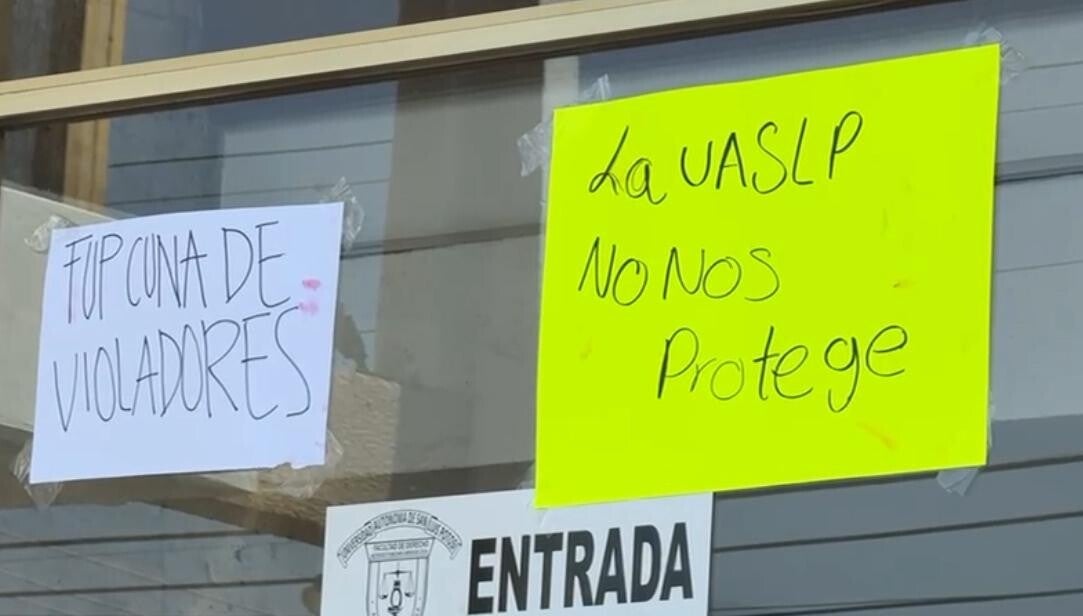 FUP CUNA DE
VIOLADORES
La UASLP
NO NOS
Protege
UNIVERSIDAD AUTONOMA DE SAN LUIS POTOSI
FACULTAD DE DERECHO
ENTRADA